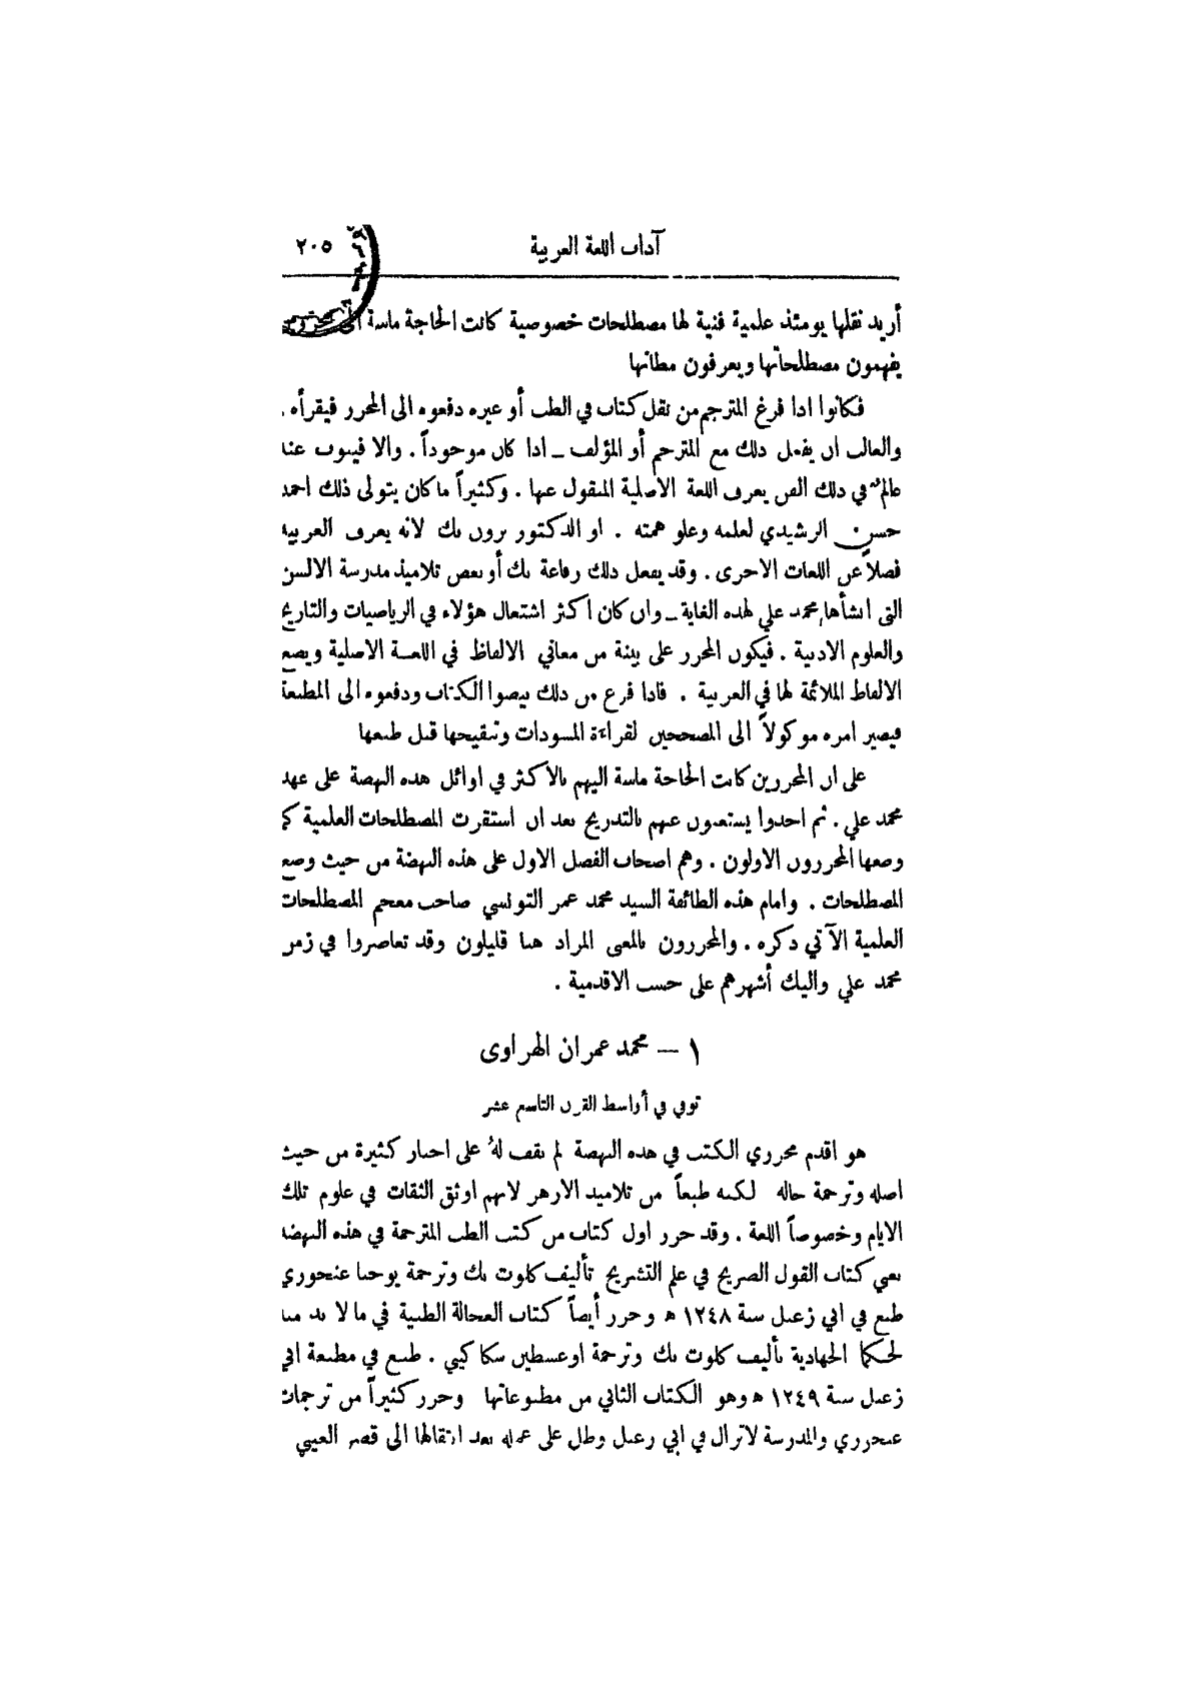 آداب اللغة العربية ٢٠٥
أريد نقلها يومئذ علمية فنية لها مصطلحات خصوصية كانت الحاجة ماسة الى محررين
يفهمون مصطلحاتها ويعرفون مظانها
فكانوا اذا فرغ المترجم من نقل كتاب في الطب أو غيره دفعوه الى المحرر فيقرأه .
والغالب ان يفعل ذلك مع المترجم أو المؤلف ــ اذا كان موجوداً . والا فينوب عنه
عالم في ذلك الفن يعرف اللغة الاصلية المنقول عنها . وكثيراً ما كان يتولى ذلك احمد
حسن الرشيدي لعلمه وعلو همته . او الدكتور برون بك لانه يعرف العربية
فضلاً عن اللغات الاخرى . وقد يفعل ذلك رفاعة بك أو بعض تلاميذ مدرسة الالسن
التي انشأها محمد علي لهذه الغاية ــ وان كان اكثر اشتغال هؤلاء في الرياضيات والتاريخ
والعلوم الادبية . فيكون المحرر على بينة من معاني الالفاظ في اللغة الاصلية ويضع
الالفاظ الملائمة لها في العربية . فاذا فرغ من ذلك بيضوا الكتاب ودفعوه الى المطبعة
فيصير امره موكولاً الى المصححين لقراءة المسودات وتنقيحها قبل طبعها
على ان المحررين كانت الحاجة ماسة اليهم بالاكثر في اوائل هذه النهضة على عهد
محمد علي . ثم اخذوا يستغنون عنهم بالتدريج بعد ان استقرت المصطلحات العلمية كما
وضعها المحررون الاولون . وهم اصحاب الفضل الاول على هذه النهضة من حيث وضع
المصطلحات . وامام هذه الطائفة السيد محمد عمر التونسي صاحب معجم المصطلحات
العلمية الآتي ذكره . والمحررون بالمعنى المراد هنا قليلون وقد تعاصروا في زمن
محمد علي واليك أشهرهم على حسب الاقدمية .
١ — محمد عمران الهراوى
توفي في أواسط القرن التاسع عشر
هو اقدم محرري الكتب في هذه النهضة لم نقف لهُ على اخبار كثيرة من حيث
اصله وترجمة حاله لكنه طبعاً من تلاميذ الازهر لانهم اوثق الثقات في علوم تلك
الايام وخصوصاً اللغة . وقد حرر اول كتاب من كتب الطب المترجمة في هذه النهضة
نعني كتاب القول الصريح في علم التشريح تأليف كلوت بك وترجمة يوحنا عنحوري
طبع في ابي زعبل سنة ١٢٤٨ ه وحرر أيضاً كتاب العجالة الطبية في ما لا بد منه
لحكما الجهادية تأليف كلوت بك وترجمة اوغسطين سكاكيني . طبع في مطبعة ابي
زعبل سنة ١٢٤٩ ه وهو الكتاب الثاني من مطبوعاتها وحرر كثيراً من ترجمات
عنحوري والمدرسة لاتزال في ابي زعبل وظل على عمله بعد انتقالها الى قصر العيني